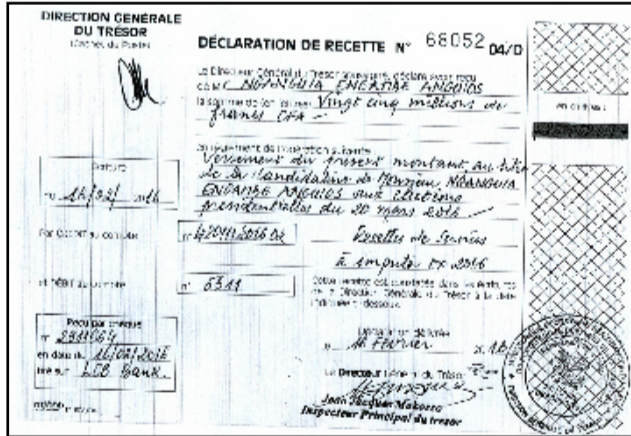 DIRECTION GENERALE
DU TRÉSOR
DÉCLARATION DE RECETTE N° 68052 04/D
Le Directeur Général du Trésor soussigné, déclare avoir reçu
de M NGANGUIA ENGAMBE ANGUIOS
la somme de (en lettres) Vingt cinq millions de
francs CFA
en règlement de l'opération suivante
Versement du présent montant, au titre
de la candidature de Monsieur NGANGUIA
ENGAMBE ANGUIOS aux élections
présidentielles du 20 mars 2016
2016
Par CREDIT au compte
n°
Recettes de Services
à imputer ex 2016
et DÉBIT au compte
n° 5311
Cette recette est comptabilisée dans les écritures
de la Direction Générale du Trésor à la date
indiquée ci-dessous.
Reçu par chèque
n°
en date du 16/02/2016
tiré sur LCB Bank.
Déclaration délivrée
Février
Le Directeur Général du Trésor
Jean Jacques Makosso
Inspecteur Principal du trésor